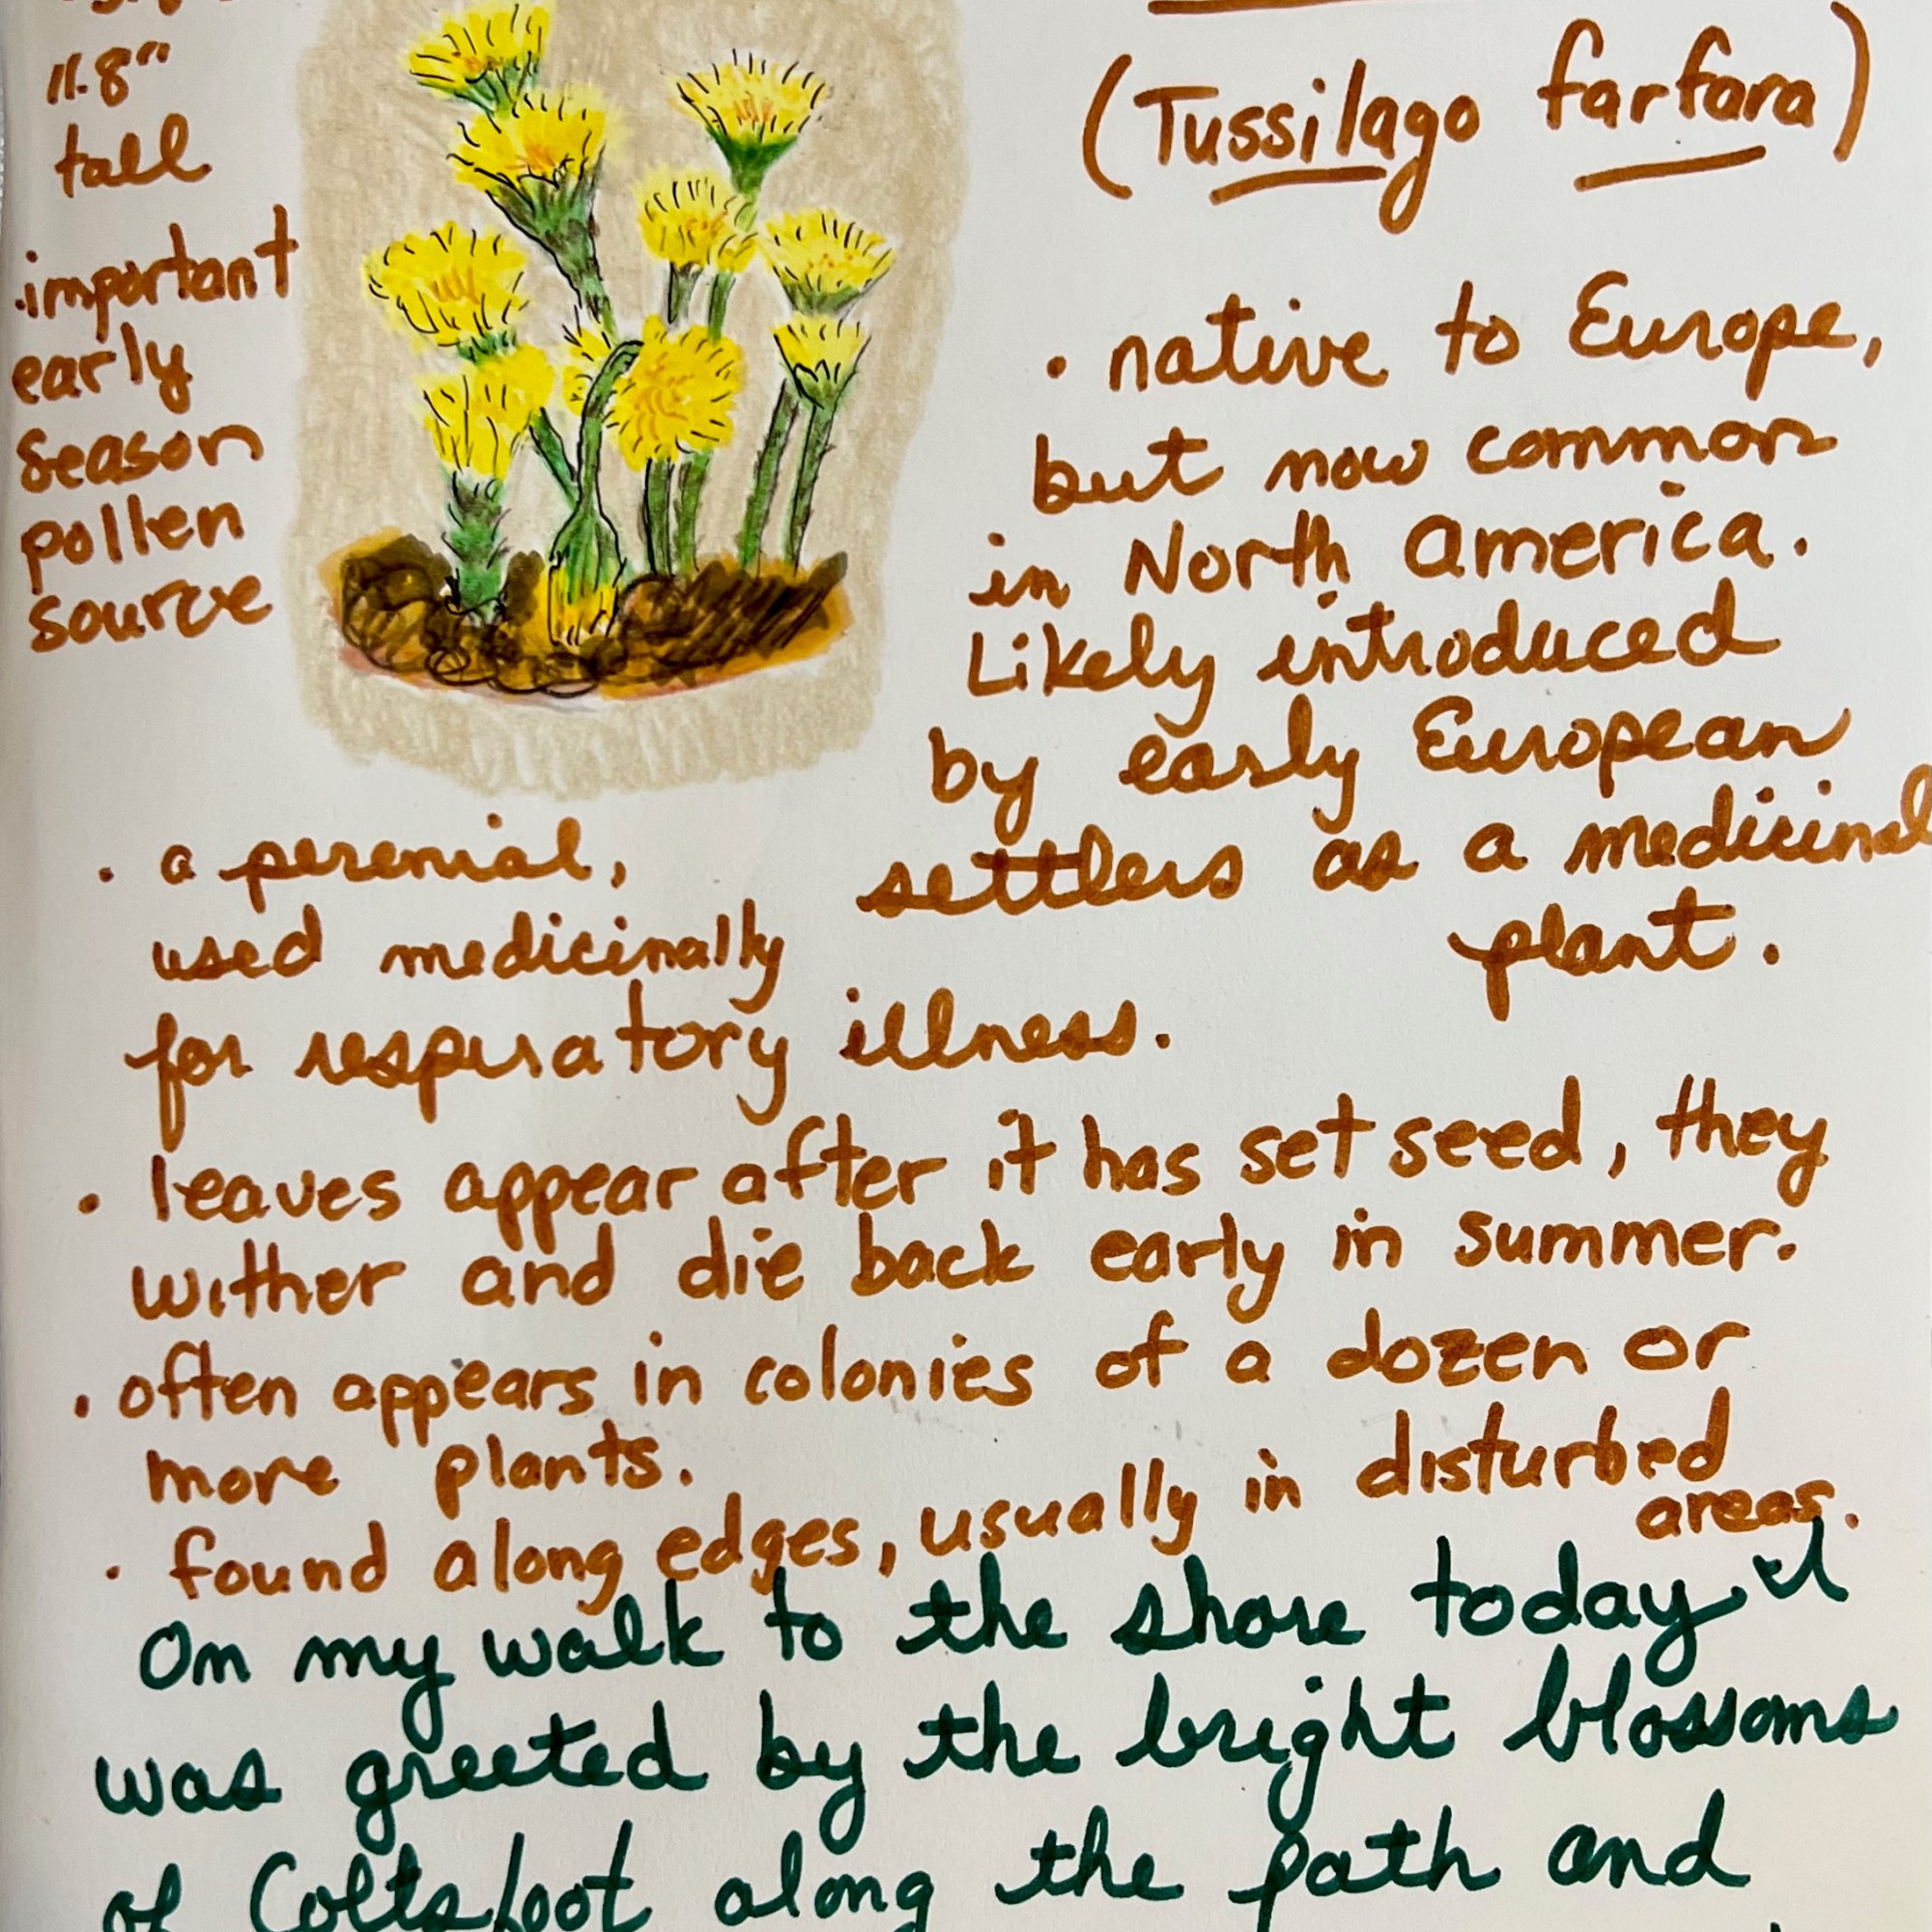 11.8"
tall
·important
early
season
pollen
source
(Tussilago farfara)
· native to Europe,
but now common
in North America.
Likely introduced
by early European
settlers as a medicinal
plant.
· a perenial,
used medicinally
for respiratory illness.
· leaves appear after it has set seed, they
wither and die back early in summer.
· often appears in colonies of a dozen or
more plants.
· found along edges, usually in disturbed
areas.
On my walk to the shore today I
was greeted by the bright blossoms
of Coltsfoot along the path and